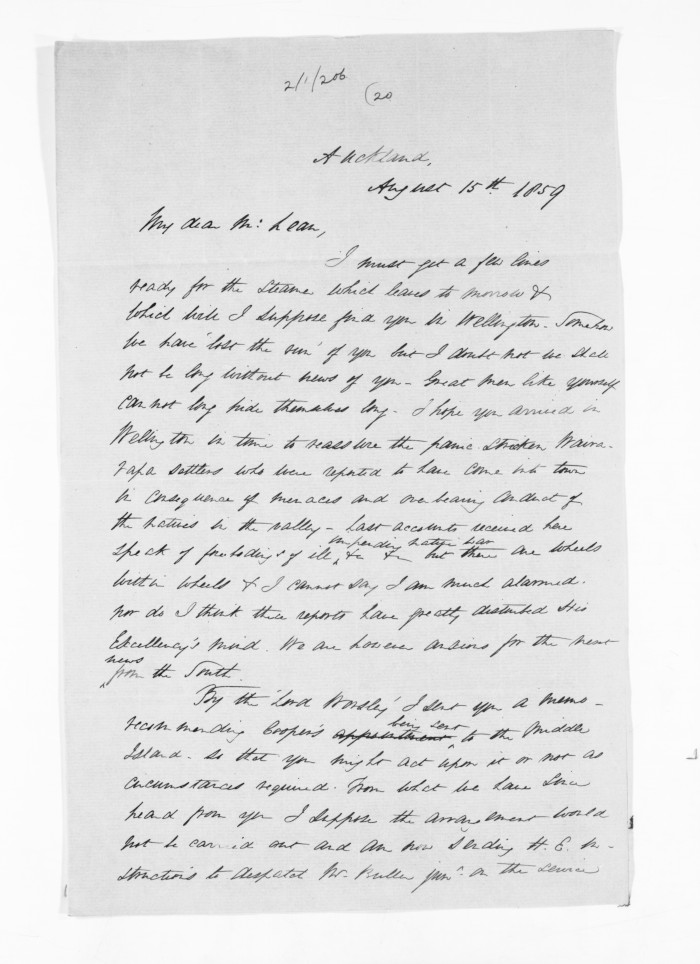 2/1/206
(20
Auckland,
August 15th 1859
My dear Mc Lean,
I must get a few lines
ready for the Steamer which leaves to morrow &
which will I suppose find you in Wellington. Somehow
we have 'lost the run' of you but I doubt not we shall
not be long without news of you - Great men like yourself
cannot long hide themselves long. I hope you arrived in
Wellington in time to reassure the panic stricken Waira-
rapa settlers who were reported to have come into town
in consequence of menaces and overbearing conduct of
the natives in the valley - Last accounts received here
impending native war
speak of forebodings of ill, &c &c but there are wheels
within wheels & I cannot say I am much alarmed.
nor do I think these reports have greatly disturbed His
Excellency's mind. We are however anxious for the next
news
from the South.
By the 'Lord Worsley' I sent you a memo -
recommending Cooper's appointment being sent to the Middle
Island - so that you might act upon it or not as
circumstances required. From what we have since
heard from you I suppose the arrangement would
not be carried out and am now sending H. E. in-
structions to despatch Mr. Buller junr. on the service